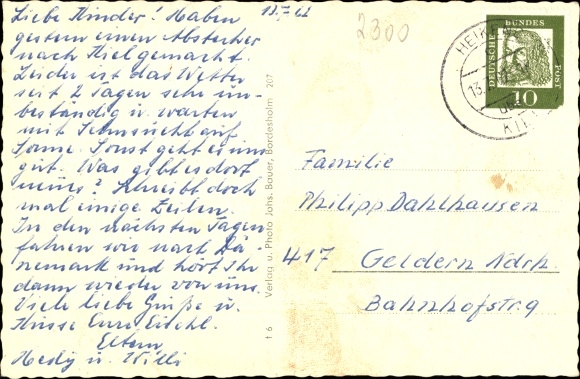 13.7.62
Liebe Kinder! Haben
gestern einen Abstecher
nach Kiel gemacht.
Leider ist das Wetter
seit 2 Tagen sehr un-
beständig u. warten
mit Sehnsucht auf
Sonne. Sonst geht es uns
gut. Was gibt es dort
neues? Schreibt doch
mal einige Zeilen.
In den nächsten Tagen
fahren wir nach Dä-
nemark und hört Ihr
dann wieder von uns.
Viele liebe Grüße u.
Küsse Eure
Eltern
Hedy u. Willi
2300
t 6 Verlag u. Photo Johs. Bauer, Bordesholm 207
DEUTSCHE BUNDESPOST
10
Familie
Philipp Dahlhausen
417 Geldern Ndrh.
Bahnhofstr. 9